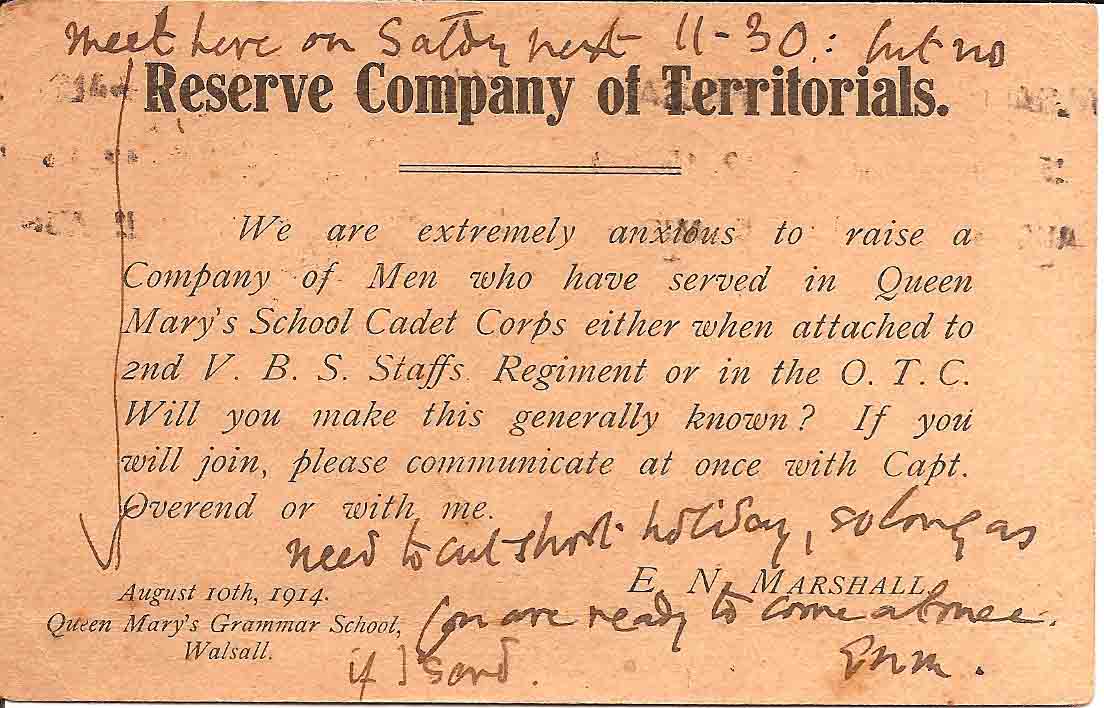 meet here on Satdy next 11-30: but no
Reserve Company of Territorials.
We are extremely anxious to raise a
Company of Men who have served in Queen
Mary's School Cadet Corps either when attached to
2nd V. B. S. Staffs. Regiment or in the O. T. C.
Will you make this generally known? If you
will join, please communicate at once with Capt.
Overend or with me.
need to cut short holiday, so long as
E. N. MARSHALL.
August 10th, 1914.
Queen Mary's Grammar School,
Walsall.
you are ready to come at once.
if I send.
ENM.